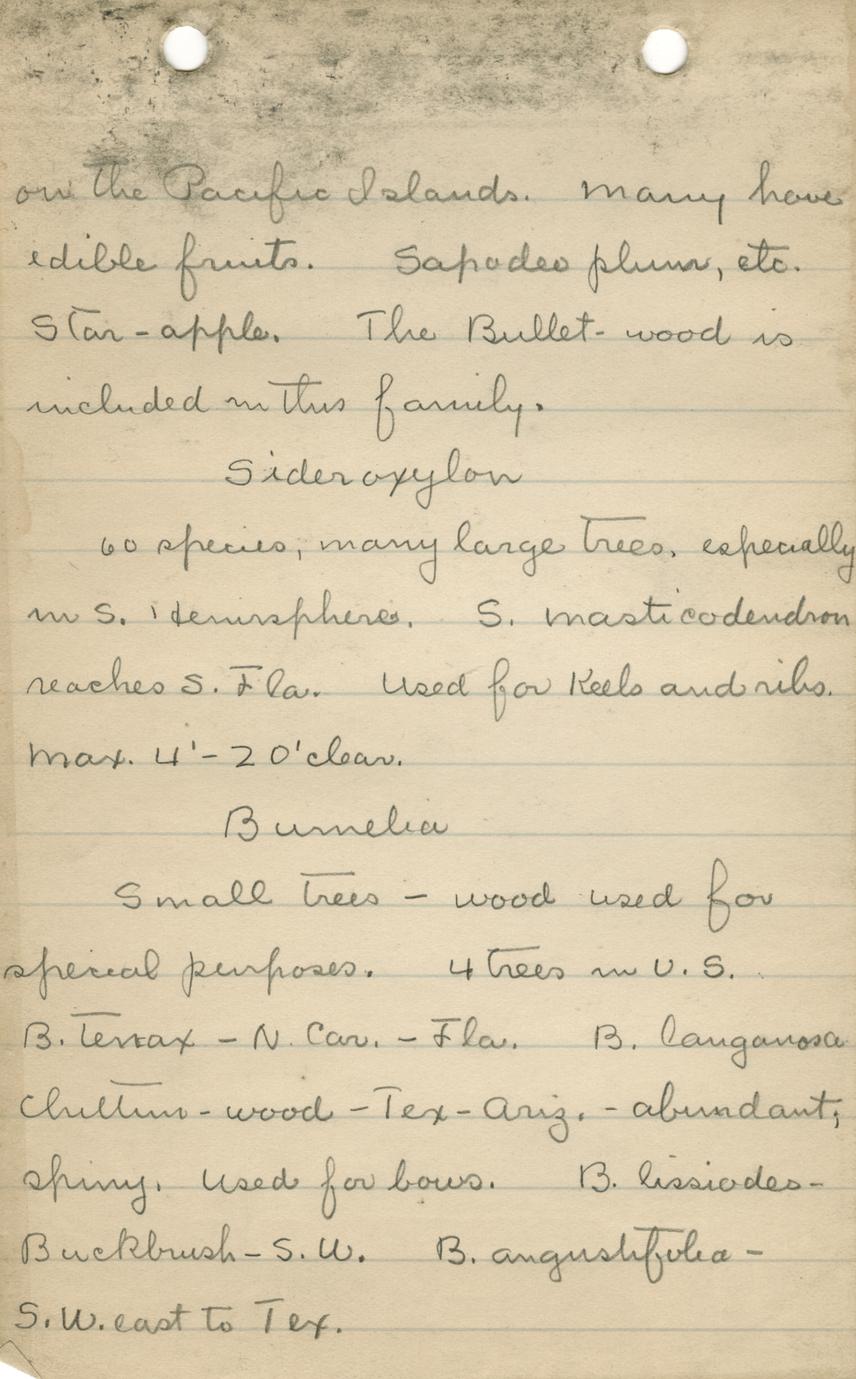 on the Pacific Islands. Many have
edible fruits. Sapodeo plum, etc.
Star-apple. The Bullet-wood is
included in this family.
Sideroxylon
60 species, many large trees, especially
in S. Hemisphere. S. masticodendron
reaches S. Fla. Used for Keels and ribs.
Max. 4'-20' clear.
Bumelia
Small trees - wood used for
special purposes. 4 trees in U.S.
B. tenax - N. Car. - Fla. B. langunosa
Chittim-wood - Tex - Ariz. - abundant;
spiny. Used for bows. B. lissiodes -
Buckbrush - S.W. B. angustifolia -
S.W. east to Tex.